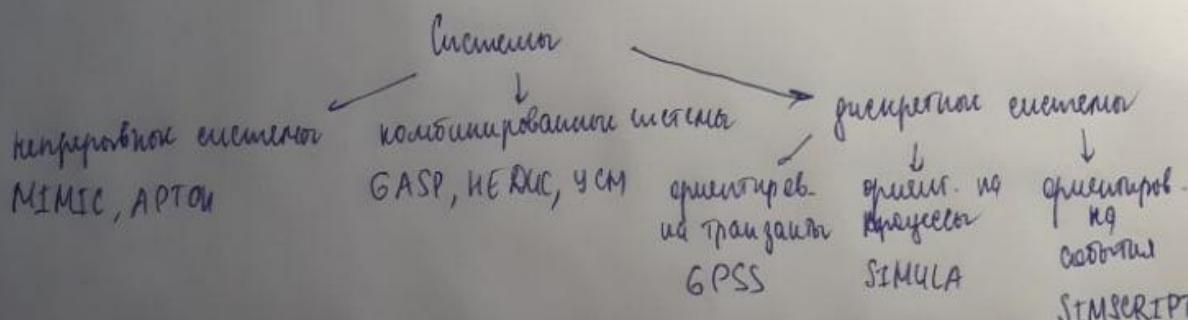 Системы
непрерывные системы
MIMIC, АРТОН
комбинированные системы
GASP, НЕДИС, УСМ
дискретные системы
ориентиров-
на транзакты
GPSS
ориент. на
процессы
SIMULA
ориентиров-
на
события
SIMSCRIPT